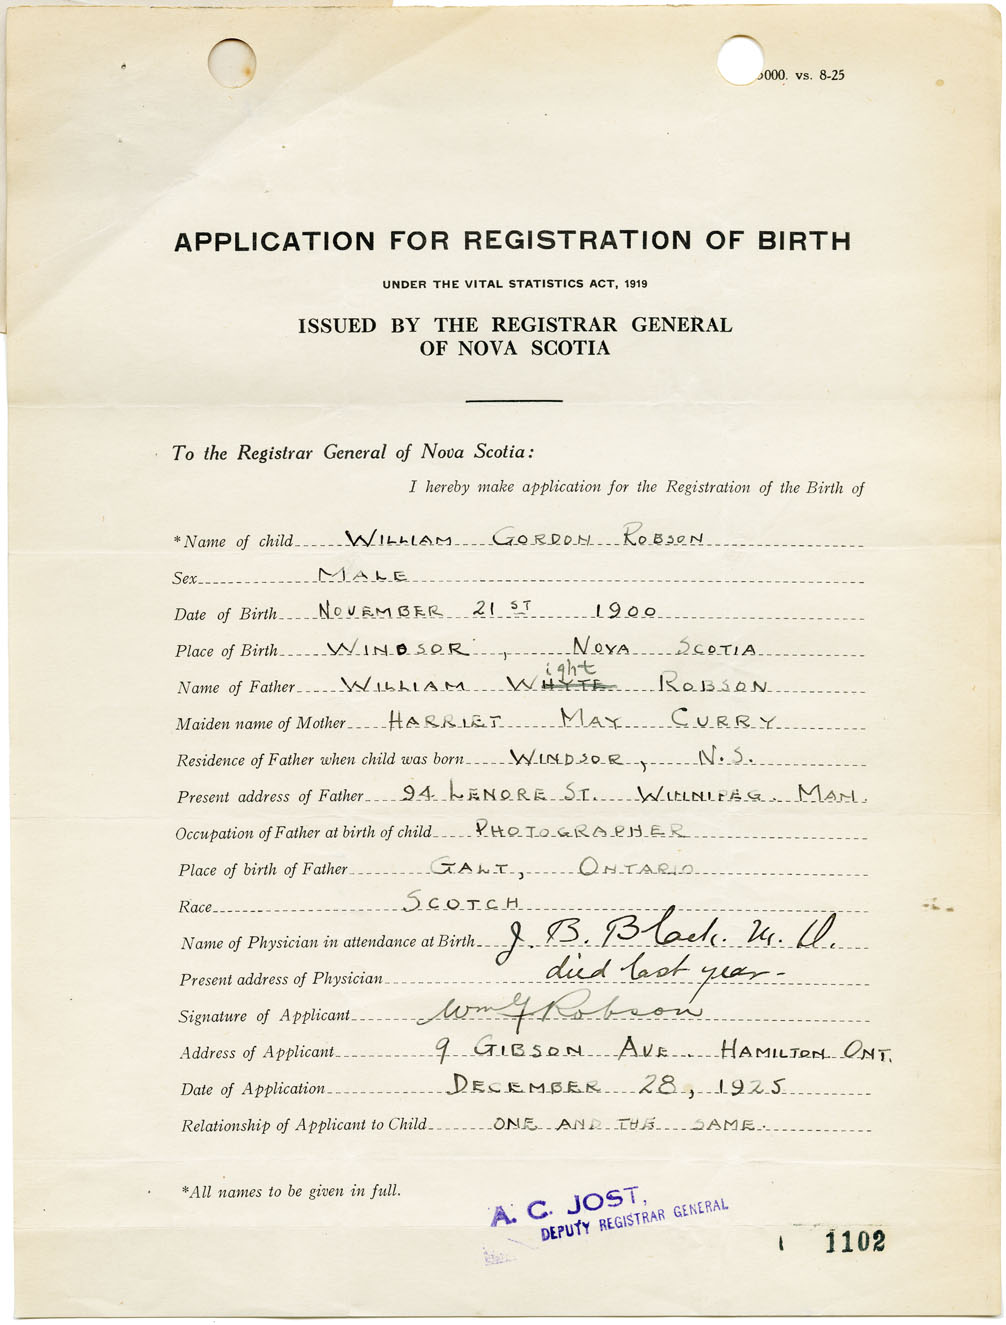 5000. vs. 8-25
APPLICATION FOR REGISTRATION OF BIRTH
UNDER THE VITAL STATISTICS ACT, 1919
ISSUED BY THE REGISTRAR GENERAL
OF NOVA SCOTIA
To the Registrar General of Nova Scotia:
I hereby make application for the Registration of the Birth of
*Name of child WILLIAM GORDON ROBSON
Sex MALE
Date of Birth NOVEMBER 21ST 1900
Place of Birth WINDSOR, NOVA SCOTIA
ight
Name of Father WILLIAM WHYTE ROBSON
Maiden name of Mother HARRIET MAY CURRY
Residence of Father when child was born WINDSOR, N.S.
Present address of Father 94 LENORE ST. WINNIPEG. MAN.
Occupation of Father at birth of child PHOTOGRAPHER
Place of birth of Father GALT, ONTARIO
Race SCOTCH
Name of Physician in attendance at Birth J. B. Black. M. D.
Present address of Physician died last year-
Signature of Applicant Wm G Robson
Address of Applicant 9 GIBSON AVE. HAMILTON ONT.
Date of Application DECEMBER 28, 1925
Relationship of Applicant to Child ONE AND THE SAME.
*All names to be given in full.
A. C. JOST,
DEPUTY REGISTRAR GENERAL
1102